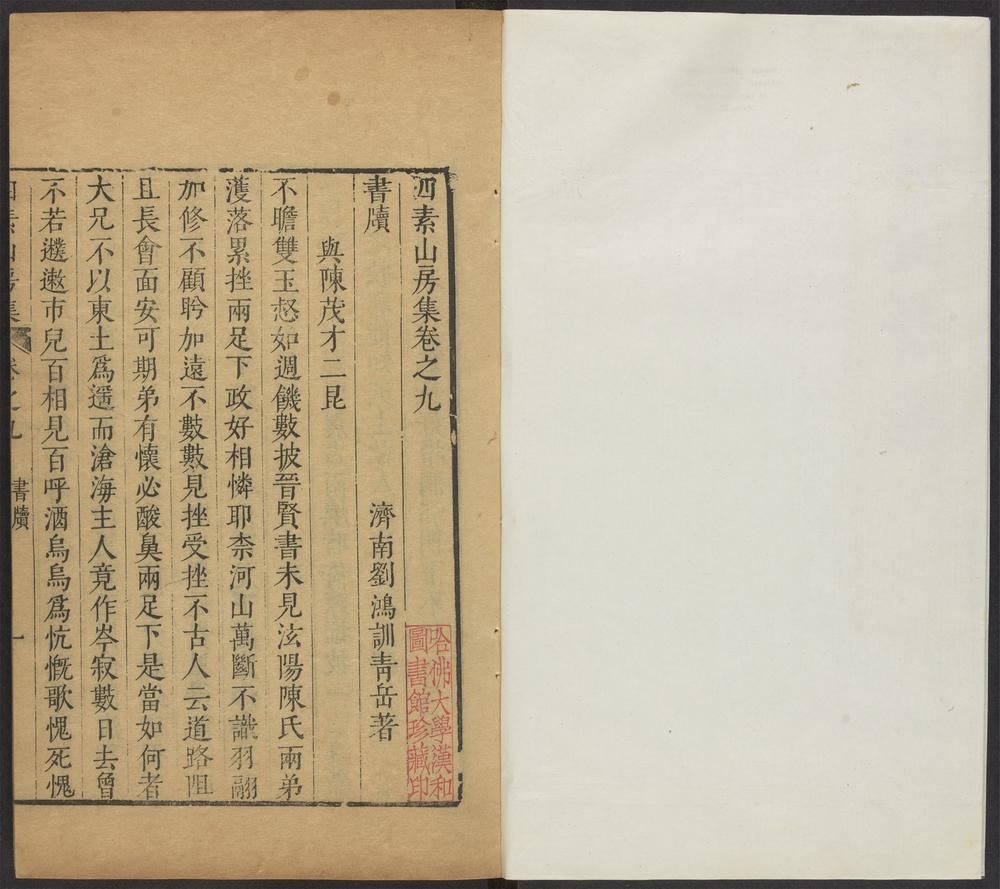 四素山房集卷之九
濟南劉鴻訓青岳著
書牘
與陳茂才二昆
不瞻雙玉惄如週饑數披晉賢書未見泫陽陳氏兩弟
濩落累挫兩足下政好相憐耶柰河山萬斷不識羽翮
加修不顧盻加遠不數數見挫受挫不古人云道路阻
且長會面安可期弟有懷必酸臭兩足下是當如何者
大兄不以東土爲遥而滄海主人竟作岑寂數日去曾
不若蹼遬市兒百相見百呼酒烏烏爲忼慨歌愧死愧
四素山房集
卷之九
書牘
一
哈佛大學漢和
圖書館珍藏印